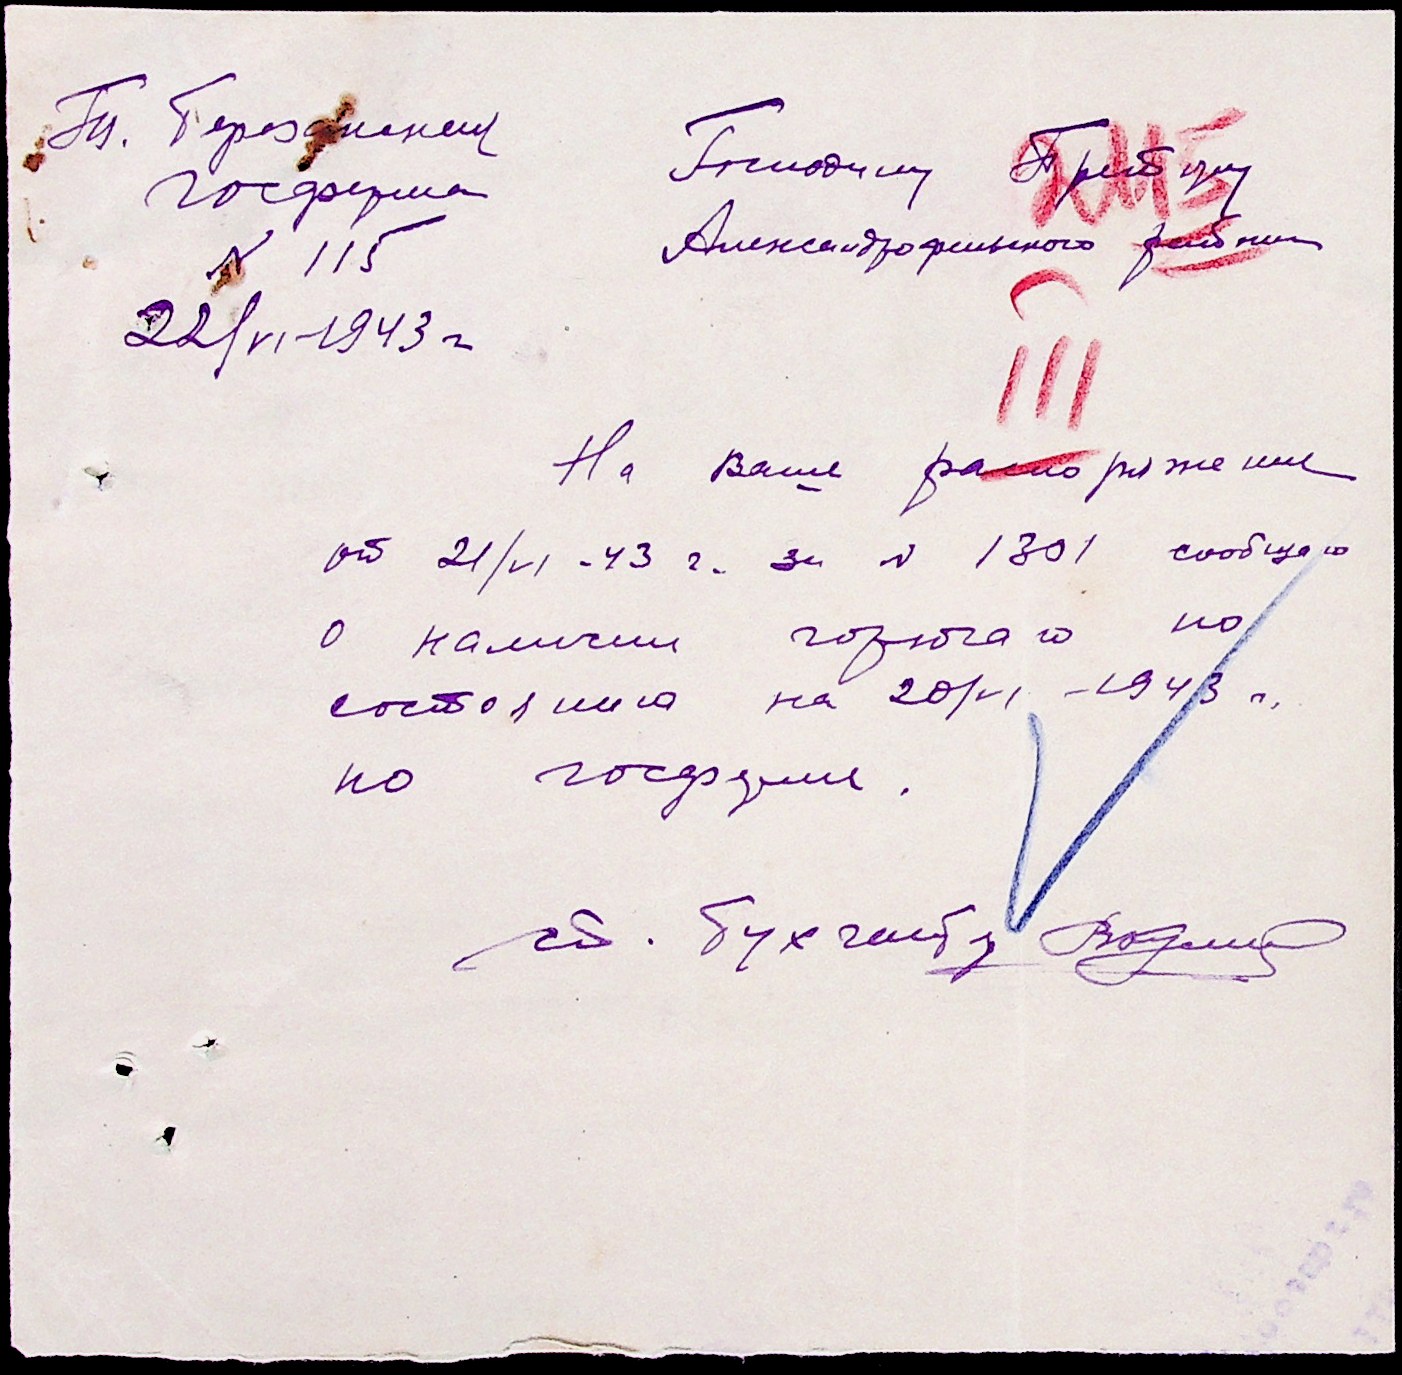 Березанская
госферма
№ 115
22/VI-1943 г
Господину Претору
Александрфельского района
III
На ваше распоряжение
от 21/VI-43 г. за № 1301 сообщаю
о наличии горючаго по
состоянию на 20/VI-1943 г.
по госферме.
ст. бухгалтер